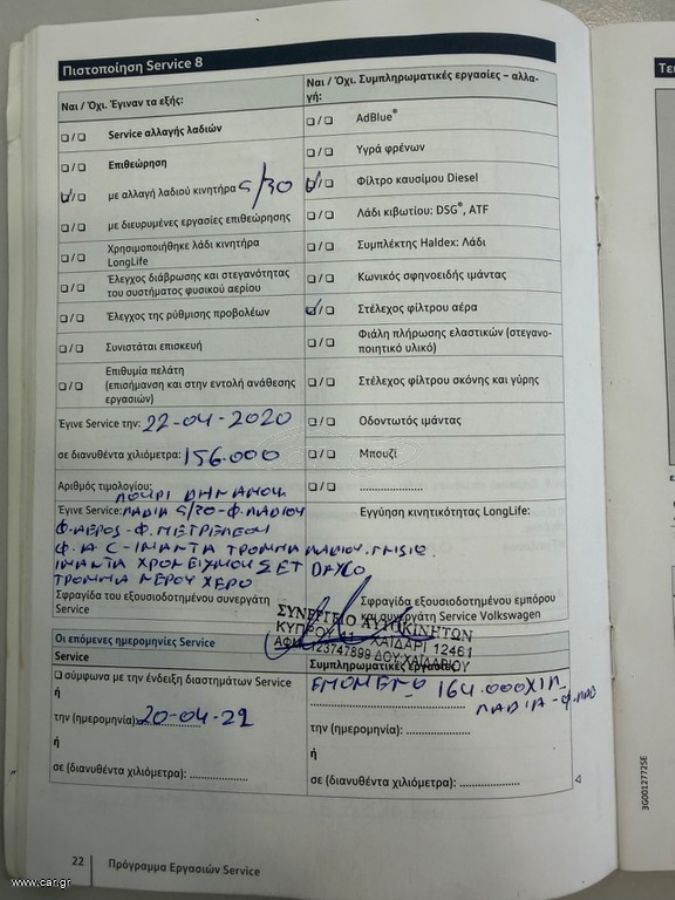 Πιστοποίηση Service 8
Ναι / Όχι. Έγιναν τα εξής:
❑ / ❑ Service αλλαγής λαδιών
❑ / ❑ Επιθεώρηση
❑ / ❑ με αλλαγή λαδιού κινητήρα 5/30
❑ / ❑ με διευρυμένες εργασίες επιθεώρησης
❑ / ❑ Χρησιμοποιήθηκε λάδι κινητήρα
LongLife
❑ / ❑ Έλεγχος διάβρωσης και στεγανότητας
του συστήματος φυσικού αερίου
❑ / ❑ Έλεγχος της ρύθμισης προβολέων
❑ / ❑ Συνιστάται επισκευή
❑ / ❑ Επιθυμία πελάτη
(επισήμανση και στην εντολή ανάθεσης
εργασιών)
Έγινε Service την: 22-04-2020
σε διανυθέντα χιλιόμετρα: 156.000
Αριθμός τιμολογίου:
ΛΟΥΡΙ ΔΗΝΑΜΟΥ
Έγινε Service: ΛΑΔΙΑ 5/30-Φ.ΛΑΔΙΟΥ
Φ.ΑΕΡΟΣ-Φ.ΠΕΤΡΕΛΕΟΥ
Φ.A C-ΙΜΑΝΤΑ ΤΡΟΜΠΑ ΛΑΔΙΟΥ
ΙΜΑΝΤΑ ΧΡΟΝΕΙΣΜΟΥ ΣΕΤ DAYCO
ΤΡΟΜΠΑ ΝΕΡΟΥ ΧΕΡΟ
Σφραγίδα του εξουσιοδοτημένου συνεργάτη
Service
Ναι / Όχι. Συμπληρωματικές εργασίες – αλλα-
γή:
❑ / ❑ AdBlue®
❑ / ❑ Υγρά φρένων
❑ / ❑ Φίλτρο καυσίμου Diesel
❑ / ❑ Λάδι κιβωτίου: DSG®, ATF
❑ / ❑ Συμπλέκτης Haldex: Λάδι
❑ / ❑ Κωνικός σφηνοειδής ιμάντας
❑ / ❑ Στέλεχος φίλτρου αέρα
❑ / ❑ Φιάλη πλήρωσης ελαστικών (στεγανο-
ποιητικό υλικό)
❑ / ❑ Στέλεχος φίλτρου σκόνης και γύρης
❑ / ❑ Οδοντωτός ιμάντας
❑ / ❑ Μπουζί
❑ / ❑ ....................
Εγγύηση κινητικότητας LongLife:
Σφραγίδα εξουσιοδοτημένου εμπόρου
και συνεργάτη Service Volkswagen
ΣΥΝΕΡΓΕΙΟ ΑΥΤΟΚΙΝΗΤΩΝ
ΚΥΠΡΟΥ ΧΑΪΔΑΡΙ 12461
ΑΦΜ 123747899 ΔΟΥ:ΧΑΪΔΑΡΙΟΥ
Οι επόμενες ημερομηνίες Service
Service
❑ σύμφωνα με την ένδειξη διαστημάτων Service
ή
την (ημερομηνία): 20-04-21
ή
σε (διανυθέντα χιλιόμετρα): ..................
Συμπληρωματικές εργασίες
ΕΠΟΜΕΝΟ 164.000ΧΙΛ
ΛΑΔΙΑ-Φ.ΛΑΔ
την (ημερομηνία): ....................
ή
σε (διανυθέντα χιλιόμετρα): ..................
22 Πρόγραμμα Εργασιών Service
3G0012772SE
Τε
www.car.gr